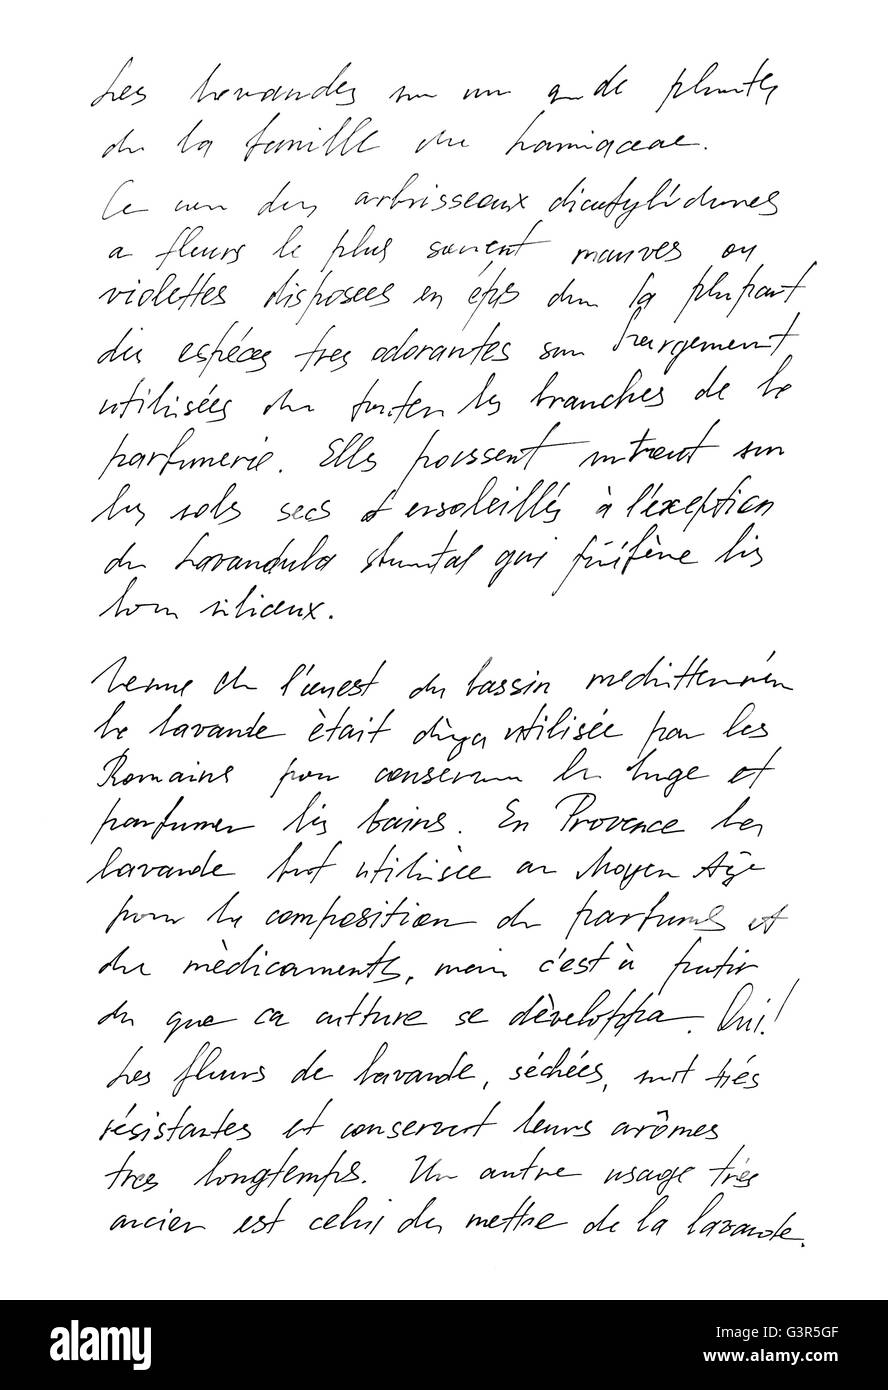 Les lavandes de plantes
de la famille du Lamiaceae.
Ce des arbrisseaux dicotylédones
a fleurs le plus souvent mauves ou
violettes disposees en épis dans la plupart
des espéces tres odorantes sont largement
utilisées dans toutes les branches de la
parfumerie. Elles poussent surtout sur
les sols secs et ensoleillés à l'exeption
du Lavandula qui préfère les
silicieux.
Venue de l'ouest du bassin
la lavande ètait dèja utilisée par les
Romains pour conserver le linge et
parfumer les bains. En Provence la
lavande fut utilisèe au Moyen Age
pour la composition de parfums et
du mèdicaments, mais c'est à
du que ca culture se dèveloppa. Oui!
Les fleurs de lavande, séchées, sont trés
résistantes et conservent leurs arômes
tres longtemps. Un autre usage trés
ancien est celui de mettre de la lavande.
alamy
a
alamy
Image ID: G3R5GF
www.alamy.com